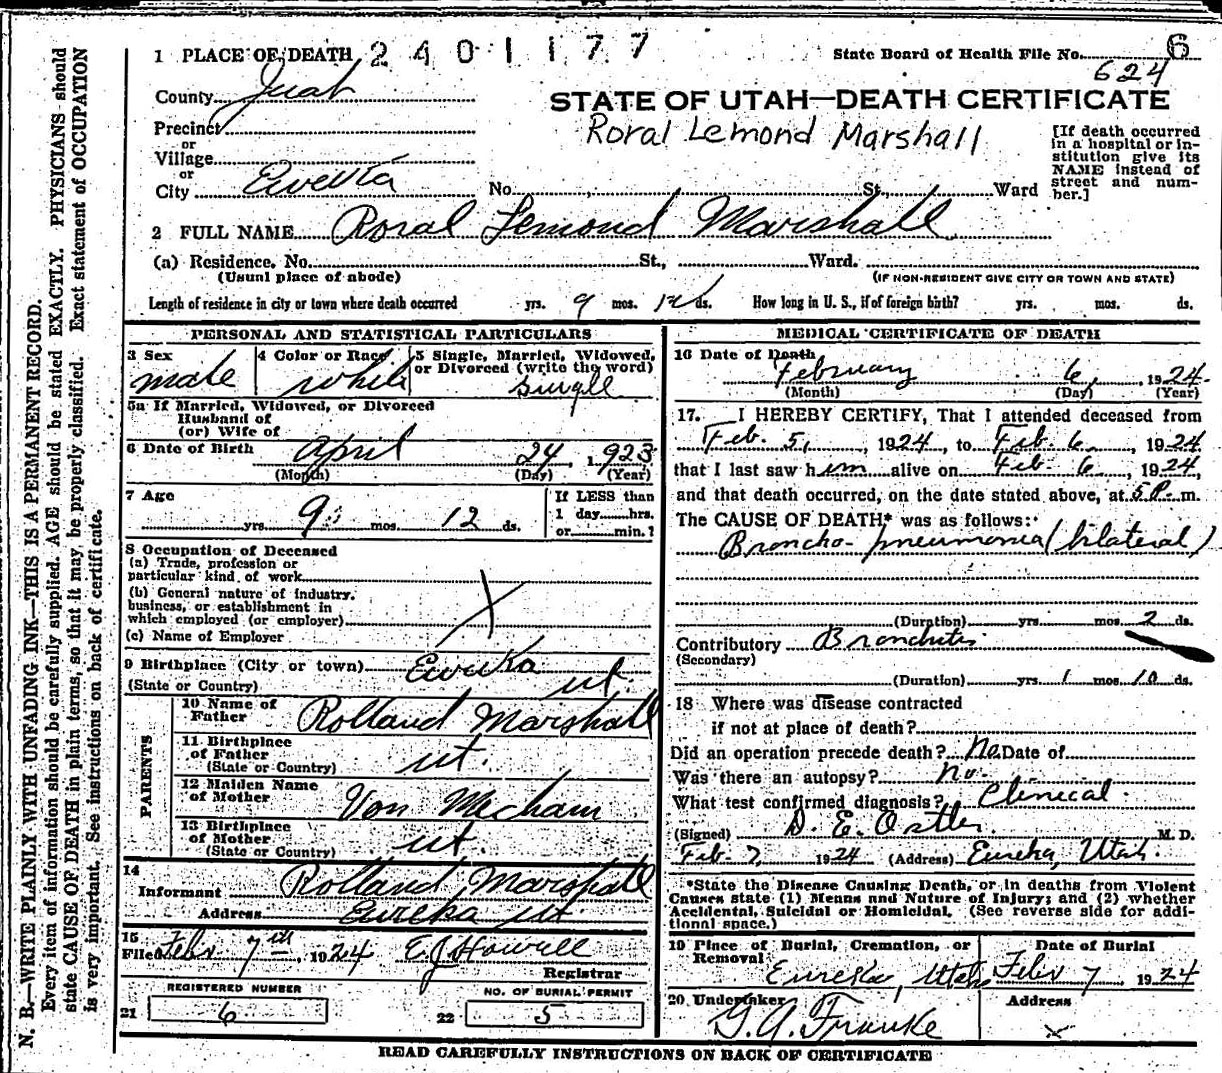 1 PLACE OF DEATH 2401177 State Board of Health File No. 6
624
County Juab
STATE OF UTAH—DEATH CERTIFICATE
Precinct
or
Village
or
City Eureka No. St., Ward
Roral Lemond Marshall
[If death occurred
in a hospital or in-
stitution give its
NAME instead of
street and num-
ber.]
2 FULL NAME Roral Lemond Marshall
(a) Residence, No. St., Ward.
(Usual place of abode) (IF NON-RESIDENT GIVE CITY OR TOWN AND STATE)
Length of residence in city or town where death occurred yrs. 9 mos. 12 ds. How long in U. S., if of foreign birth? yrs. mos. ds.
PERSONAL AND STATISTICAL PARTICULARS
3 Sex
male
4 Color or Race
white
5 Single, Married, Widowed,
or Divorced (write the word)
single
5a If Married, Widowed, or Divorced
Husband of
(or) Wife of
6 Date of Birth April 24, 1923
(Month) (Day) (Year)
7 Age
yrs. 9 mos. 12 ds.
If LESS than
1 day hrs.
or min.?
8 Occupation of Deceased
(a) Trade, profession or
particular kind of work
(b) General nature of industry,
business, or establishment in
which employed (or employer)
(c) Name of Employer
X
9 Birthplace (City or town) Eureka
(State or Country) ut.
PARENTS
10 Name of
Father Rolland Marshall
11 Birthplace
of Father
(State or Country) ut.
12 Maiden Name
of Mother Von Mecham
13 Birthplace
of Mother
(State or Country) ut.
14
Informant Rolland Marshall
Address Eureka ut.
15
Filed Febr. 7th, 1924 E J Howell
Registrar
REGISTERED NUMBER
21 6
NO. OF BURIAL PERMIT
22 5
MEDICAL CERTIFICATE OF DEATH
16 Date of Death
February 6, 1924.
(Month) (Day) (Year)
17. I HEREBY CERTIFY, That I attended deceased from
Feb. 5, 1924, to Feb. 6, 1924
that I last saw him alive on Feb 6, 1924,
and that death occurred, on the date stated above, at 5 P. m.
The CAUSE OF DEATH* was as follows:
Broncho-pneumonia (bilateral)
(Duration) yrs. mos. 2 ds.
Contributory Bronchitis
(Secondary)
(Duration) yrs. 1 mos. 10 ds.
18 Where was disease contracted
if not at place of death?
Did an operation precede death? No. Date of
Was there an autopsy? No.
What test confirmed diagnosis? Clinical.
(Signed) D. E. Ostler. M. D.
Feb. 7, 1924 (Address) Eureka, Utah.
*State the Disease Causing Death, or in deaths from Violent
Causes state (1) Means and Nature of Injury; and (2) whether
Accidental, Suicidal or Homicidal. (See reverse side for addi-
tional space.)
19 Place of Burial, Cremation, or
Removal
Eureka, Utah
Date of Burial
Febr 7 1924
20 Undertaker
G. A. Franke
Address
x
READ CAREFULLY INSTRUCTIONS ON BACK OF CERTIFICATE
N. B.—WRITE PLAINLY WITH UNFADING INK—THIS IS A PERMANENT RECORD.
Every item of information should be carefully supplied. AGE should be stated EXACTLY. PHYSICIANS should
state CAUSE OF DEATH in plain terms, so that it may be properly classified. Exact statement of OCCUPATION
is very important. See instructions on back of certificate.